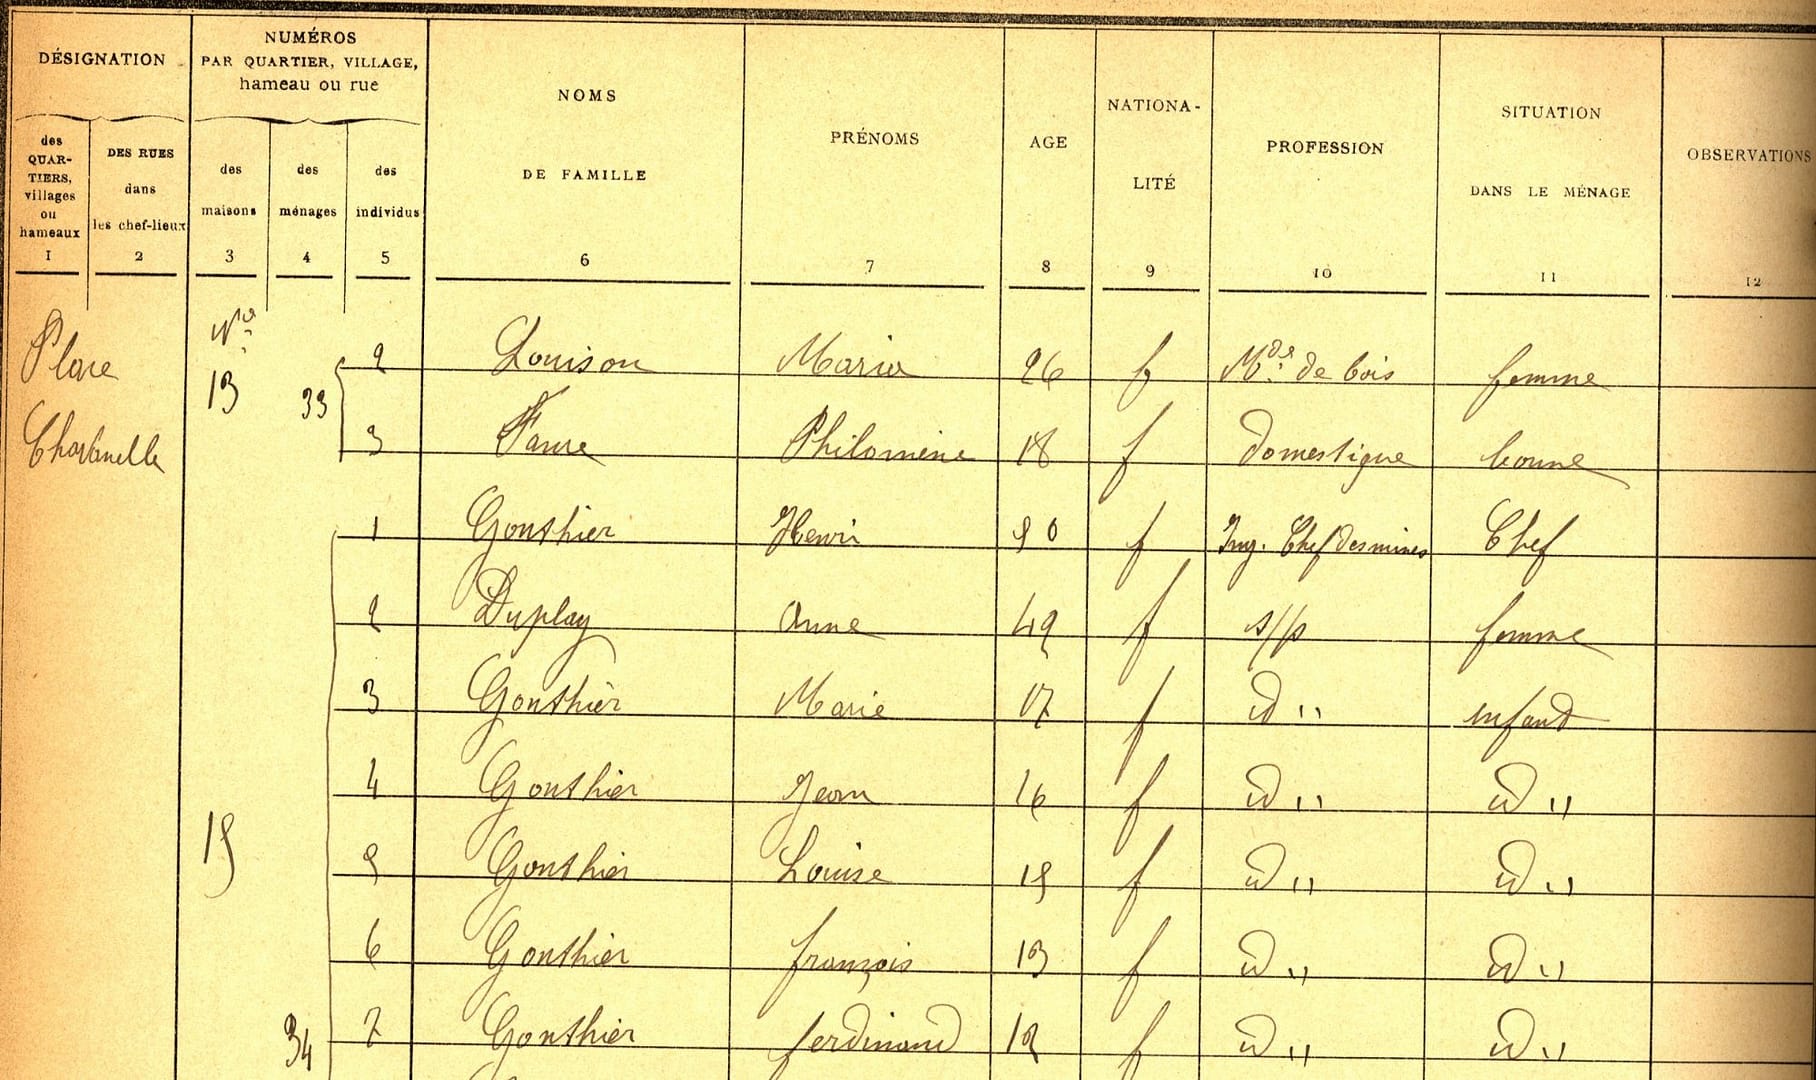 DÉSIGNATION
NUMÉROS
PAR QUARTIER, VILLAGE,
hameau ou rue
NOMS
DE FAMILLE
PRÉNOMS
AGE
NATIONA-
LITÉ
PROFESSION
SITUATION
DANS LE MÉNAGE
OBSERVATIONS
des
QUAR-
TIERS,
villages
ou
hameaux
DES RUES
dans
les chef-lieux
des
maisons
des
ménages
des
individus
1 2 3 4 5 6 7 8 9 10 11 12
Place
Chavanelle
Nº
13 33 2 Louison Maria 26 f Mde de bois femme
3 Faure Philomène 18 f domestique bonne
1 Gonthier Henri 50 f Ing. Chef des mines Chef
2 Duplay Anne 42 f s/p femme
3 Gonthier Marie 17 f id " enfant
4 Gonthier Jean 16 f id " id "
15 5 Gonthier Louise 15 f id " id "
6 Gonthier françois 13 f id " id "
34 7 Gonthier ferdinand 12 f id " id "